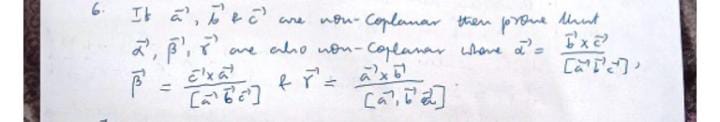 6. If a⃗, b⃗ & c⃗ are non-coplanar then prove that
α⃗, β⃗, r⃗ are also non-coplanar where α⃗ = (b⃗ × c⃗)/[a⃗ b⃗ c⃗],
β⃗ = (c⃗ × a⃗)/[a⃗ b⃗ c⃗] & r⃗ = (a⃗ × b⃗)/[a⃗, b⃗ c⃗]